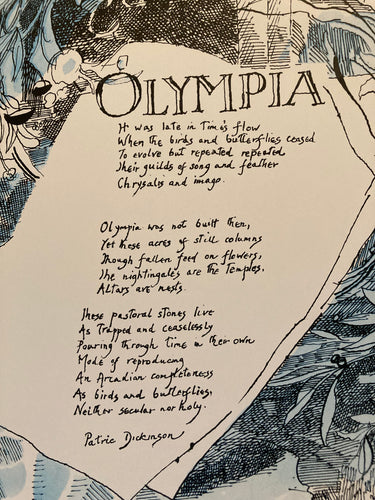 OLYMPIA
It was late in Time's flow
When the birds and butterflies ceased
To evolve but repeated repeated
Their guilds of song and feather
Chrysalis and imago.
Olympia was not built then,
Yet these acres of still columns
Though fallen feed on flowers,
The nightingales are the Temples,
Altars are nests.
These pastoral stones live
As Trapped and ceaselessly
Pouring through time in their own
Mode of reproducing
An Arcadian completeness
As birds and butterflies,
Neither secular nor holy.
Patric Dickinson